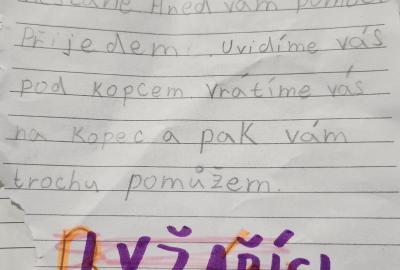 Hned vám
Přijedem. Uvidíme vás
pod kopcem vrátíme vás
na kopec a pak vám
trochu pomůžem.